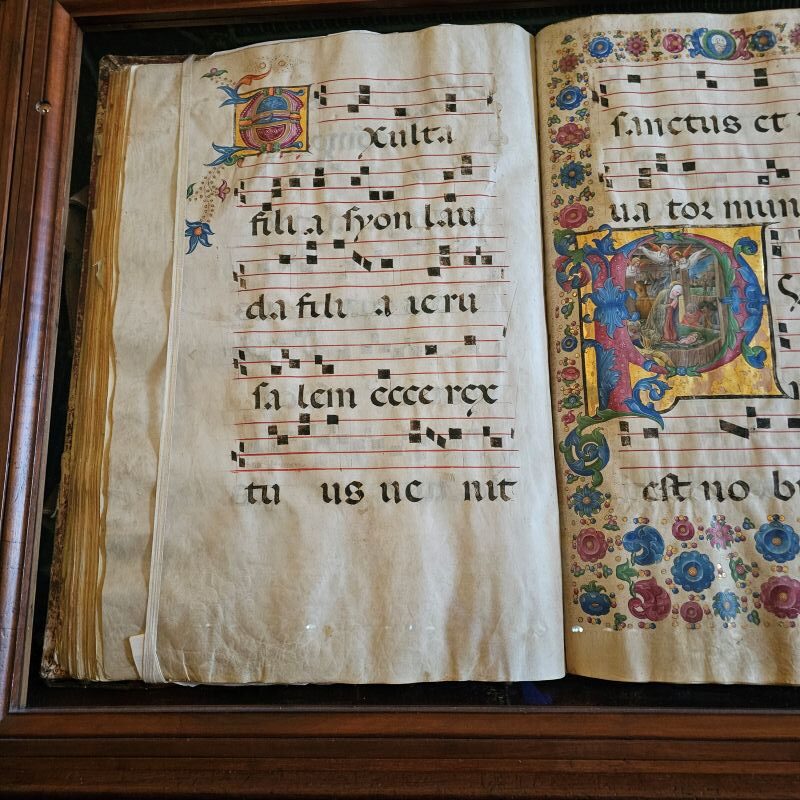 Exulta
fili a syon lau
da fili a ieru
sa lem ecce rex
tu us ue nit
sanctus et
ua tor mun
P
est no b